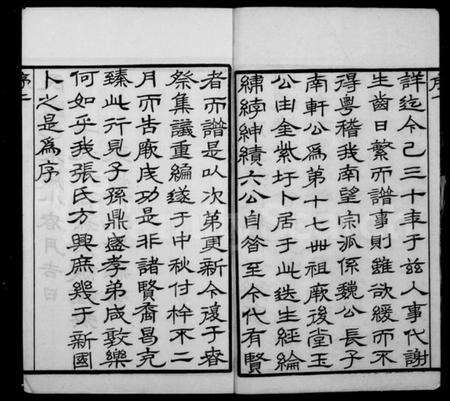 序一
詳迄今已三十年于茲人事代謝
生齒日繁而譜事則雖欲緩而不
得粵稽我南望宗派係魏公長子
南軒公爲第十七世祖厥後堂玉
公由金紫圩卜居于此迭生經綸
繡綍紳績六公自答至今代有賢
者而譜是以次弟更新今復于春
祭集議重編遂于中秋付梓不二
月而告厥成功是非諸賢裔曷克
臻此行見子孫鼎盛孝弟咸敦樂
何如乎我張氏方興庶幾于新國
卜之是爲序
序二